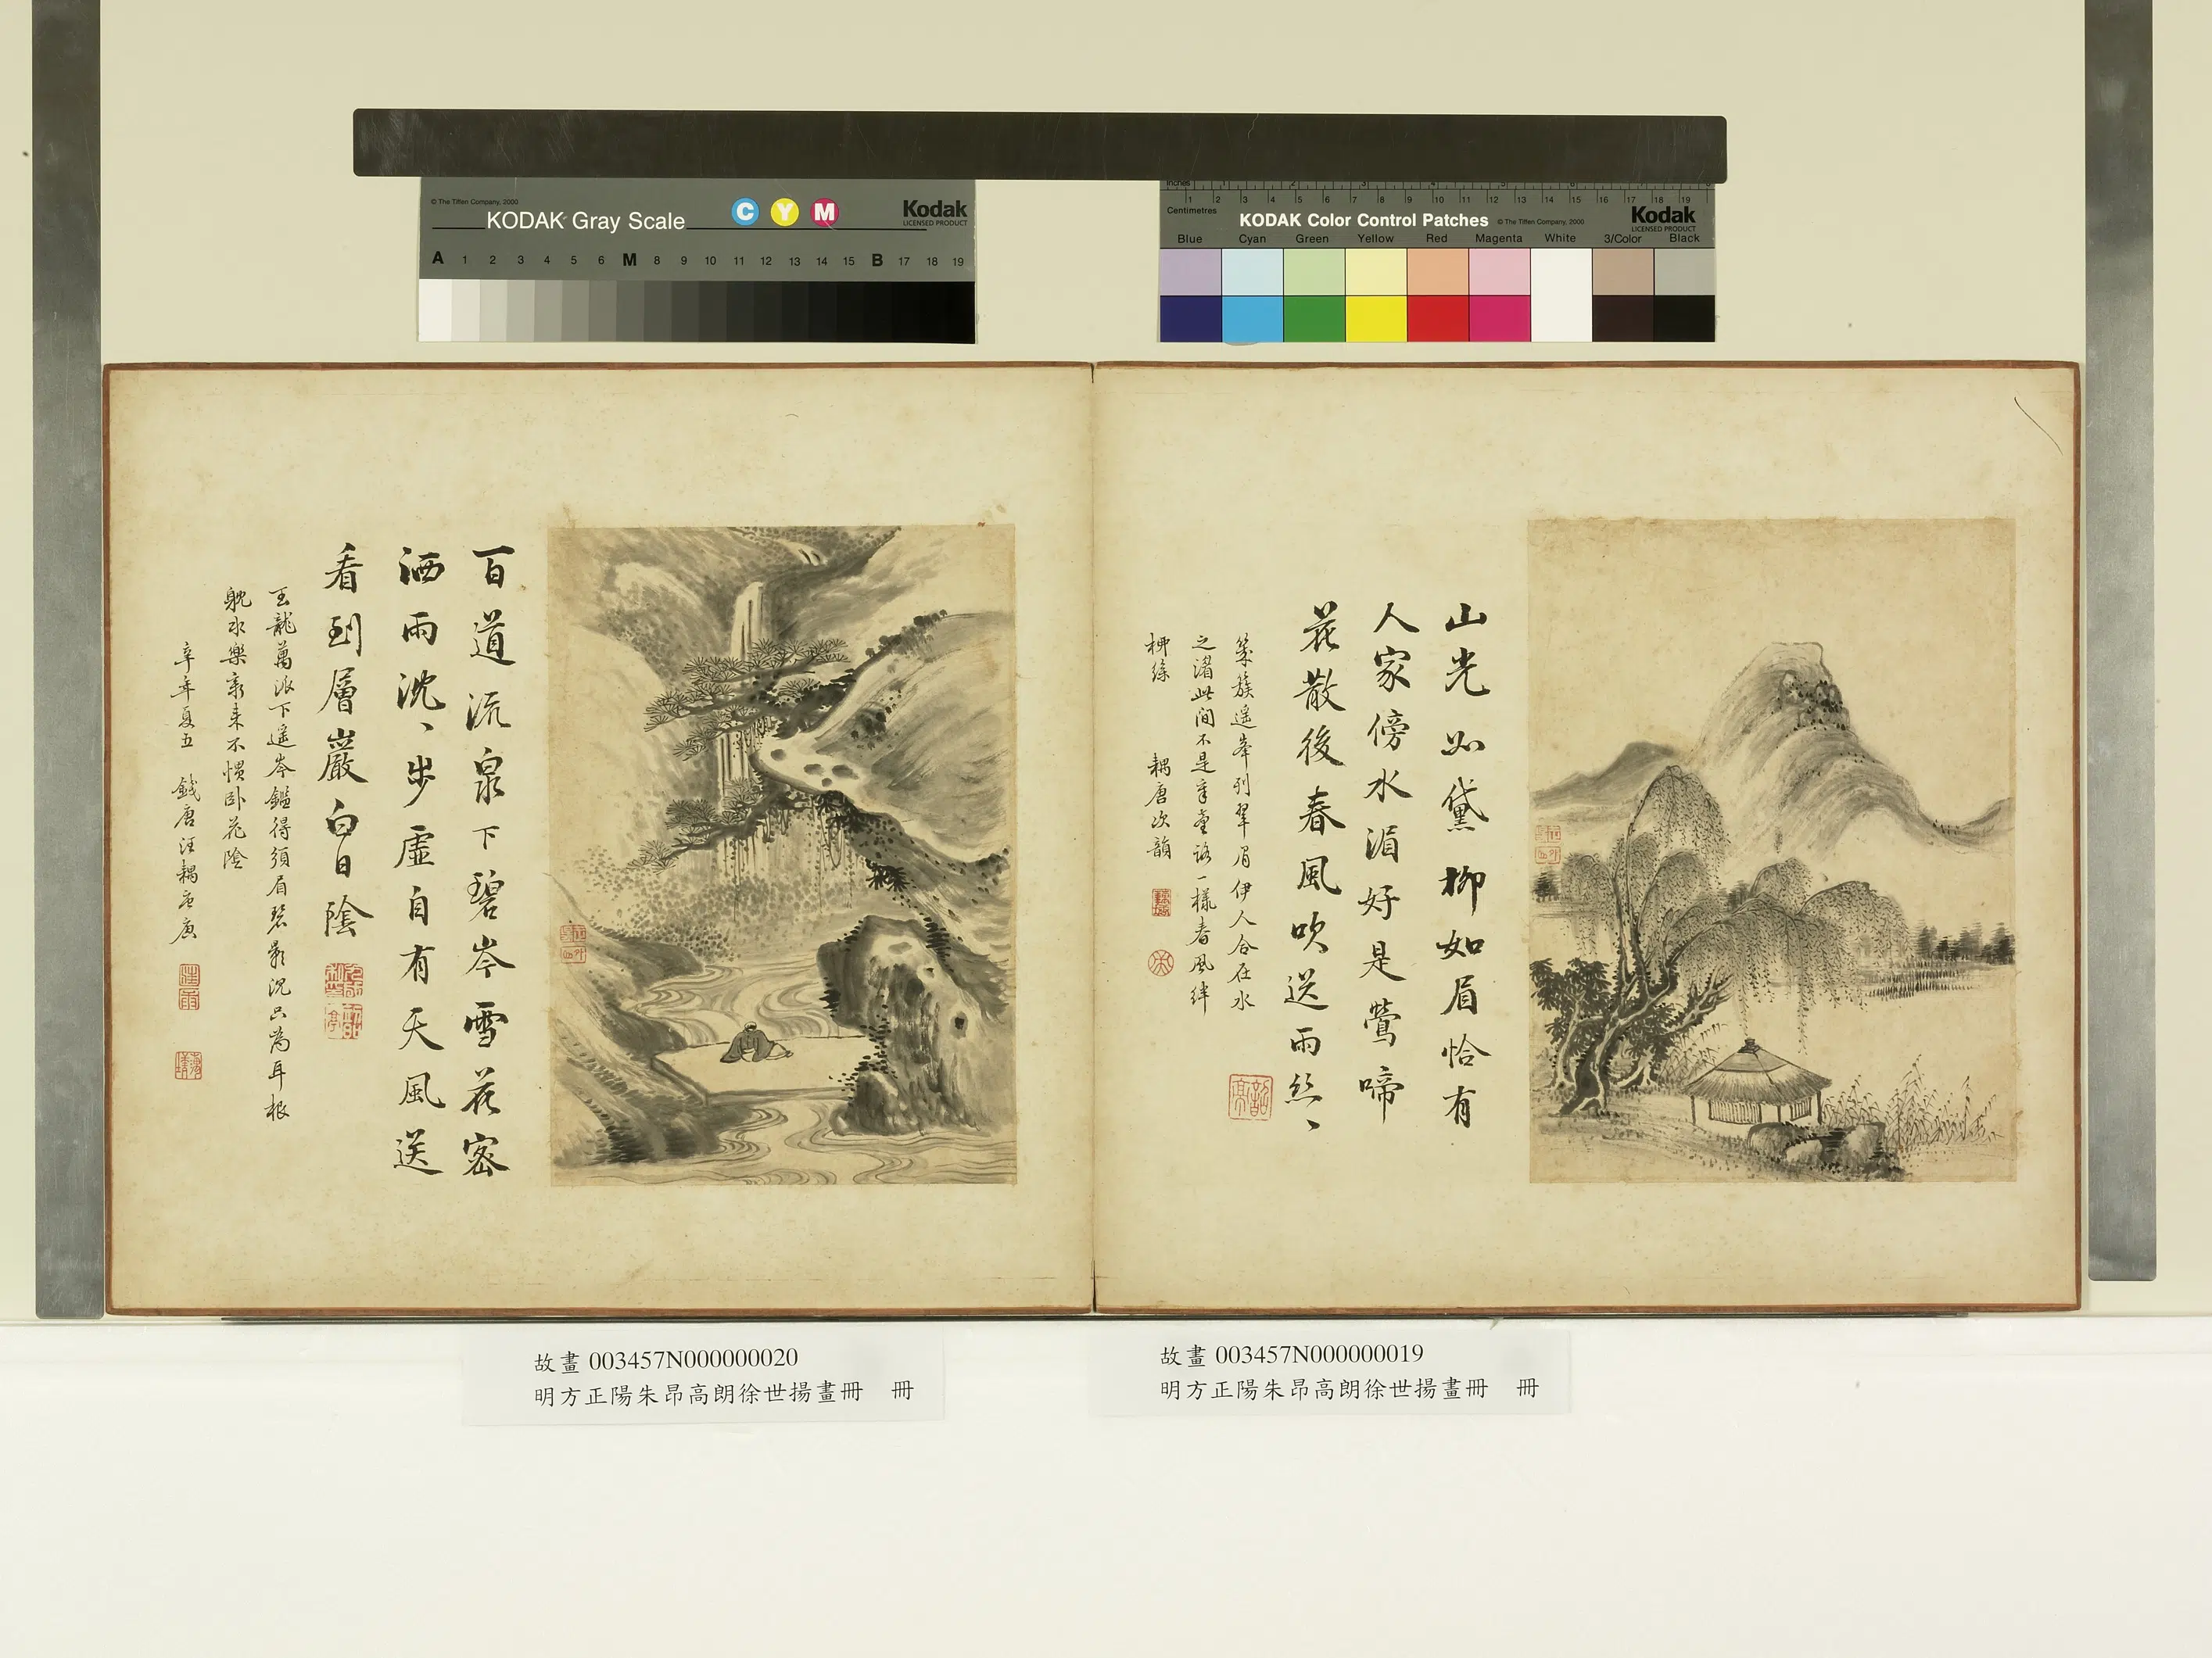 © The Tiffen Company, 2000
KODAK Gray Scale
C Y M
Kodak
LICENSED PRODUCT
A 1 2 3 4 5 6 M 8 9 10 11 12 13 14 15 B 17 18 19
Inches
1 2 3 4 5 6 7 8 9 10 11 12 13 14 15 16 17 18 19
Centimetres
KODAK Color Control Patches
© The Tiffen Company, 2000
Kodak
LICENSED PRODUCT
Blue Cyan Green Yellow Red Magenta White 3/Color Black
山光如黛柳如眉恰有
人家傍水湄好是鶯啼
花散後春風吹送雨絲丶
簇遥峯列翠眉伊人合在水
之渚此間不是章臺路一樣春風絆
柳絲 耦唐次韻
百道流泉下碧岑雪花密
洒雨沈丶步虛自有天風送
看到層巖白日陰
玉龍萬派下遥岑鑑得須眉碧影沉只為耳根
躭水樂新来不慣卧花陰
辛年夏五 錢唐汪耦唐
故畫 003457N000000020
明方正陽朱昂高朗徐世揚畫冊 冊
故畫 003457N000000019
明方正陽朱昂高朗徐世揚畫冊 冊